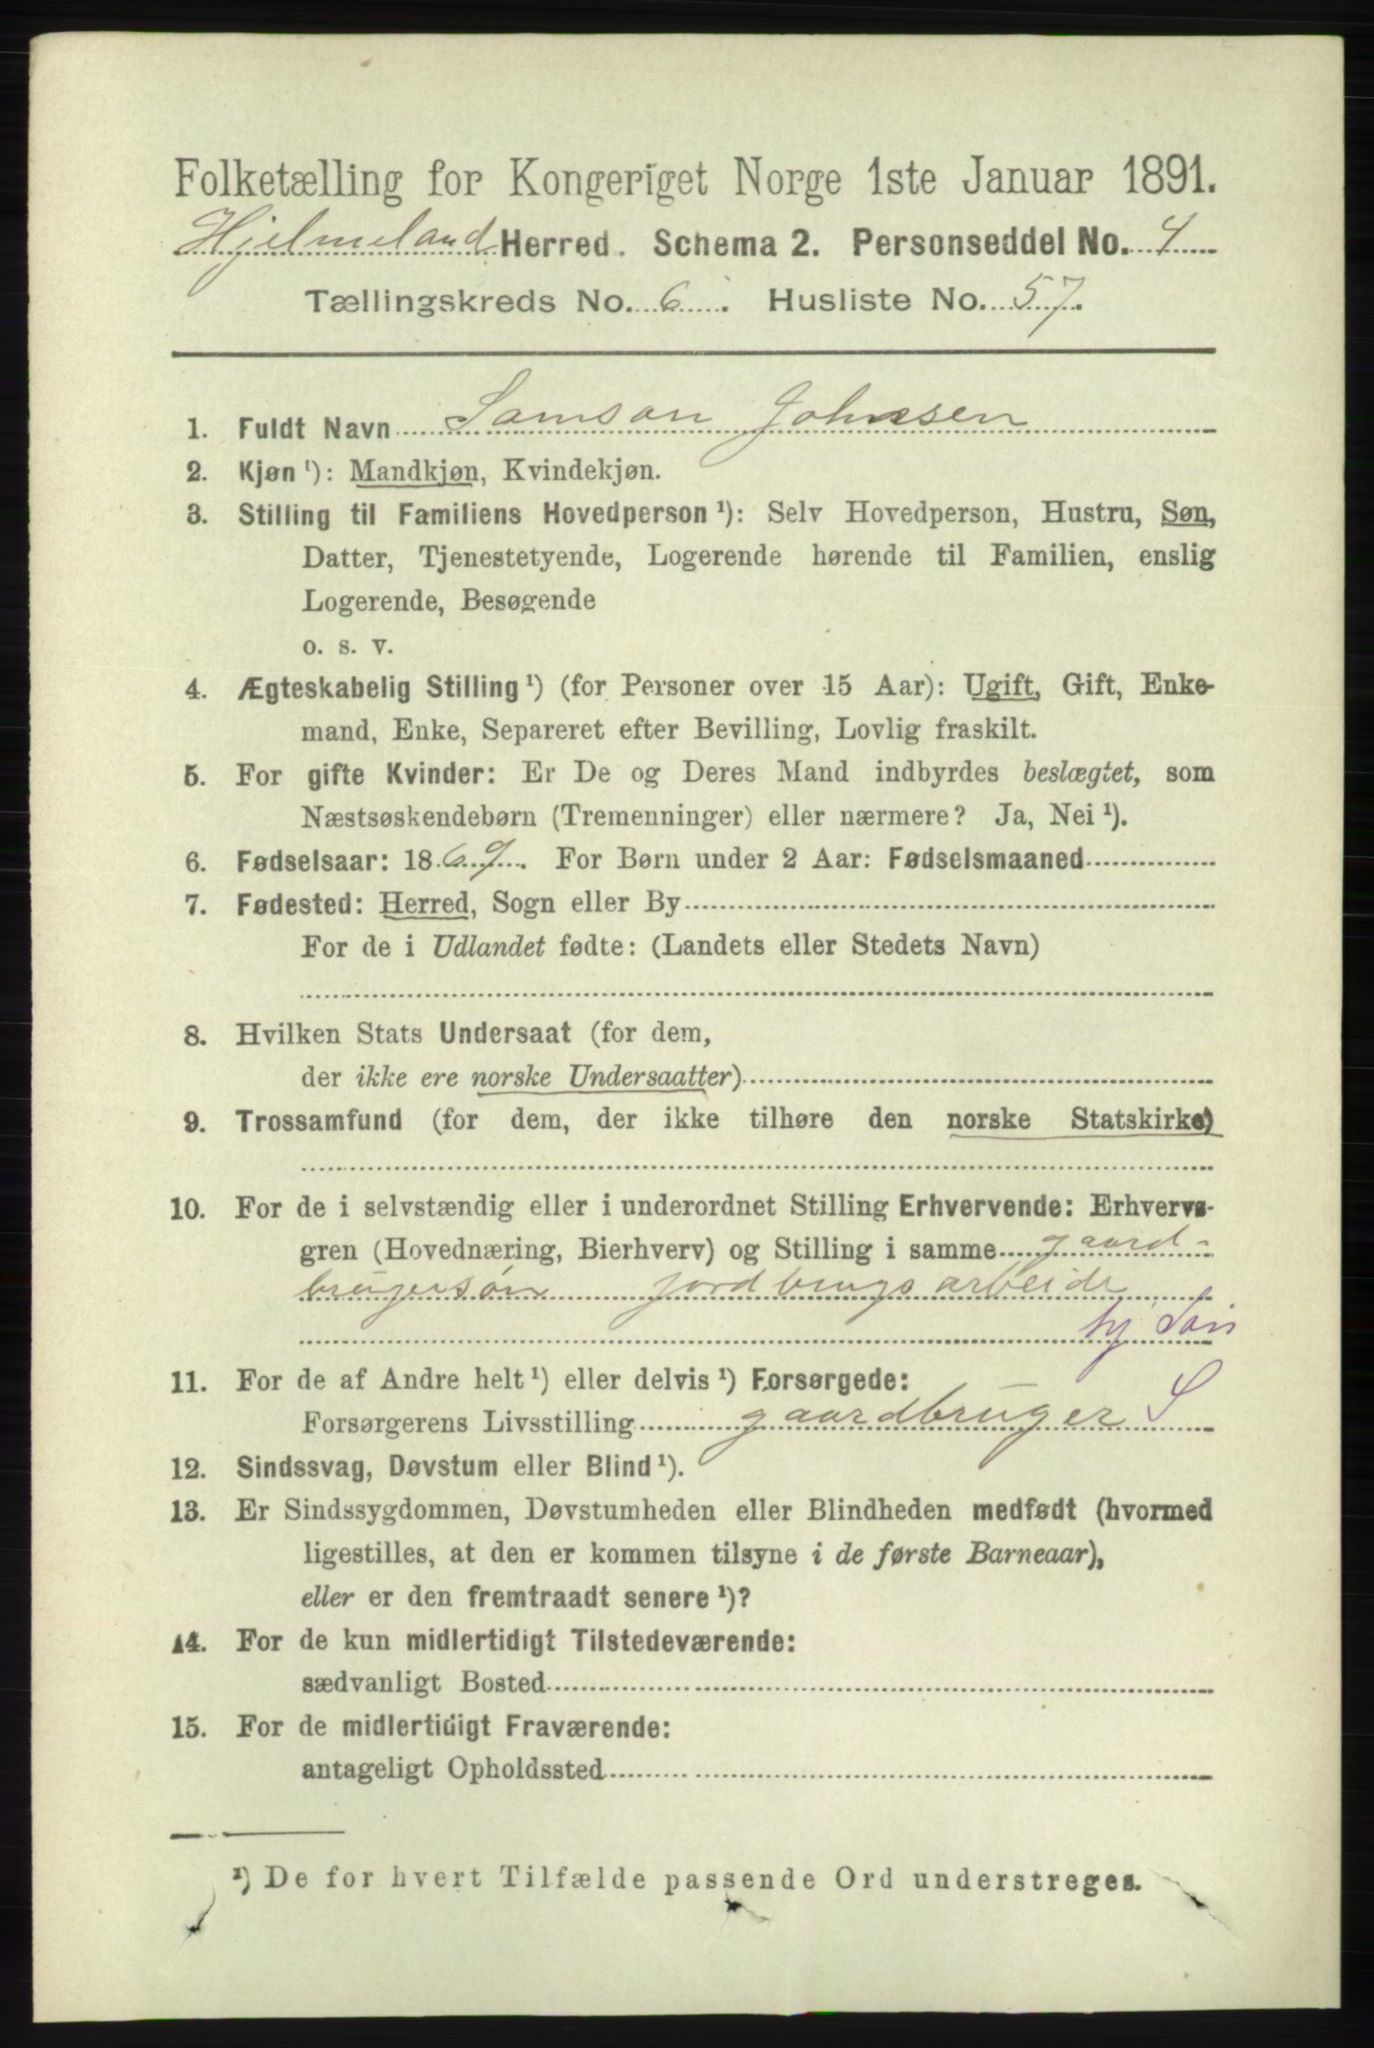 Folketælling for Kongeriget Norge 1ste Januar 1891.
Hjelmeland Herred. Schema 2. Personseddel No. 4
Tællingskreds No. 6. Husliste No. 57.
1. Fuldt Navn Samson Johnsen
2. Kjøn ¹): Mandkjøn, Kvindekjøn.
3. Stilling til Familiens Hovedperson ¹): Selv Hovedperson, Hustru, Søn,
Datter, Tjenestetyende, Logerende hørende til Familien, enslig
Logerende, Besøgende
o. s. v.
4. Ægteskabelig Stilling ¹) (for Personer over 15 Aar): Ugift, Gift, Enke-
mand, Enke, Separeret efter Bevilling, Lovlig fraskilt.
5. For gifte Kvinder: Er De og Deres Mand indbyrdes beslægtet, som
Næstsøskendebørn (Tremenninger) eller nærmere? Ja, Nei ¹).
6. Fødselsaar: 1869. For Børn under 2 Aar: Fødselsmaaned
7. Fødested: Herred, Sogn eller By
For de i Udlandet fødte: (Landets eller Stedets Navn)
8. Hvilken Stats Undersaat (for dem,
der ikke ere norske Undersaatter)
9. Trossamfund (for dem, der ikke tilhøre den norske Statskirke)
10. For de i selvstændig eller i underordnet Stilling Erhvervende: Erhvervs-
gren (Hovednæring, Bierhverv) og Stilling i samme gaard-
brugersøn jordbrugsarbeide
hj Søn
11. For de af Andre helt ¹) eller delvis ¹) Forsørgede:
Forsørgerens Livsstilling gaardbruger S
12. Sindssvag, Døvstum eller Blind ¹).
13. Er Sindssygdommen, Døvstumheden eller Blindheden medfødt (hvormed
ligestilles, at den er kommen tilsyne i de første Barneaar),
eller er den fremtraadt senere ¹)?
14. For de kun midlertidigt Tilstedeværende:
sædvanligt Bosted
15. For de midlertidigt Fraværende:
antageligt Opholdssted
¹) De for hvert Tilfælde passende Ord understreges.